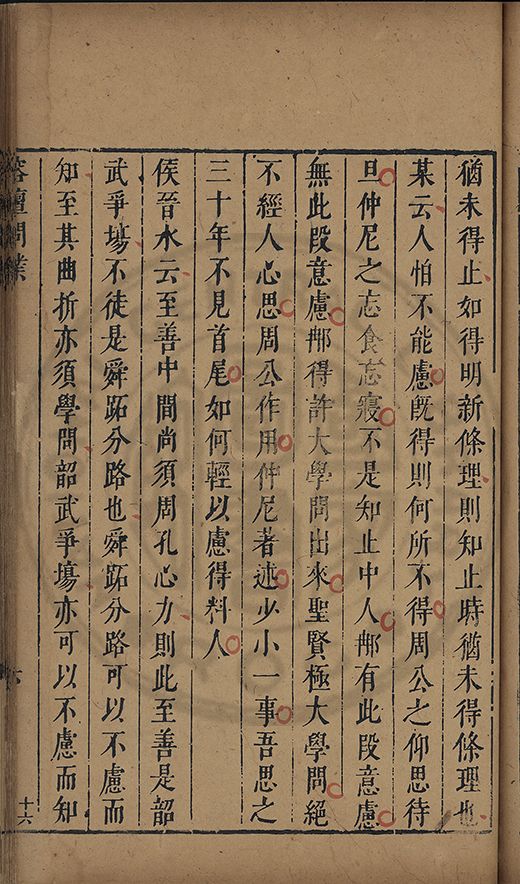 猶未得止如得明新條理則知止時猶未得條理也
某云人怕不能慮旣得則何所不得周公之仰思待
旦仲尼之忘食忘寢不是知止中人那有此段意慮
無此段意慮那得許大學問出來聖賢極大學問絕
不經人心思周公作用仲尼著述少小一事吾思之
三十年不見首尾如何輕以慮得料人
侯晉水云至善中間尚須周孔心力則此至善是韶
武爭場不徒是舜跖分路也舜跖分路可以不慮而
知至其曲折亦須學問韶武爭場亦可以不慮而知
榕壇問業
十六